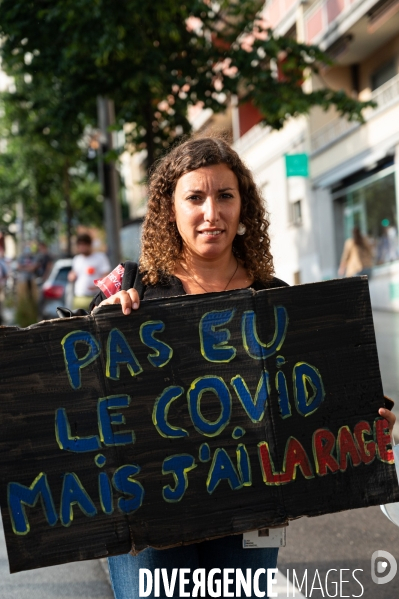 PAS EU
LE COVID
MAIS J'AI LA RAGE
DIVERGENCE IMAGES